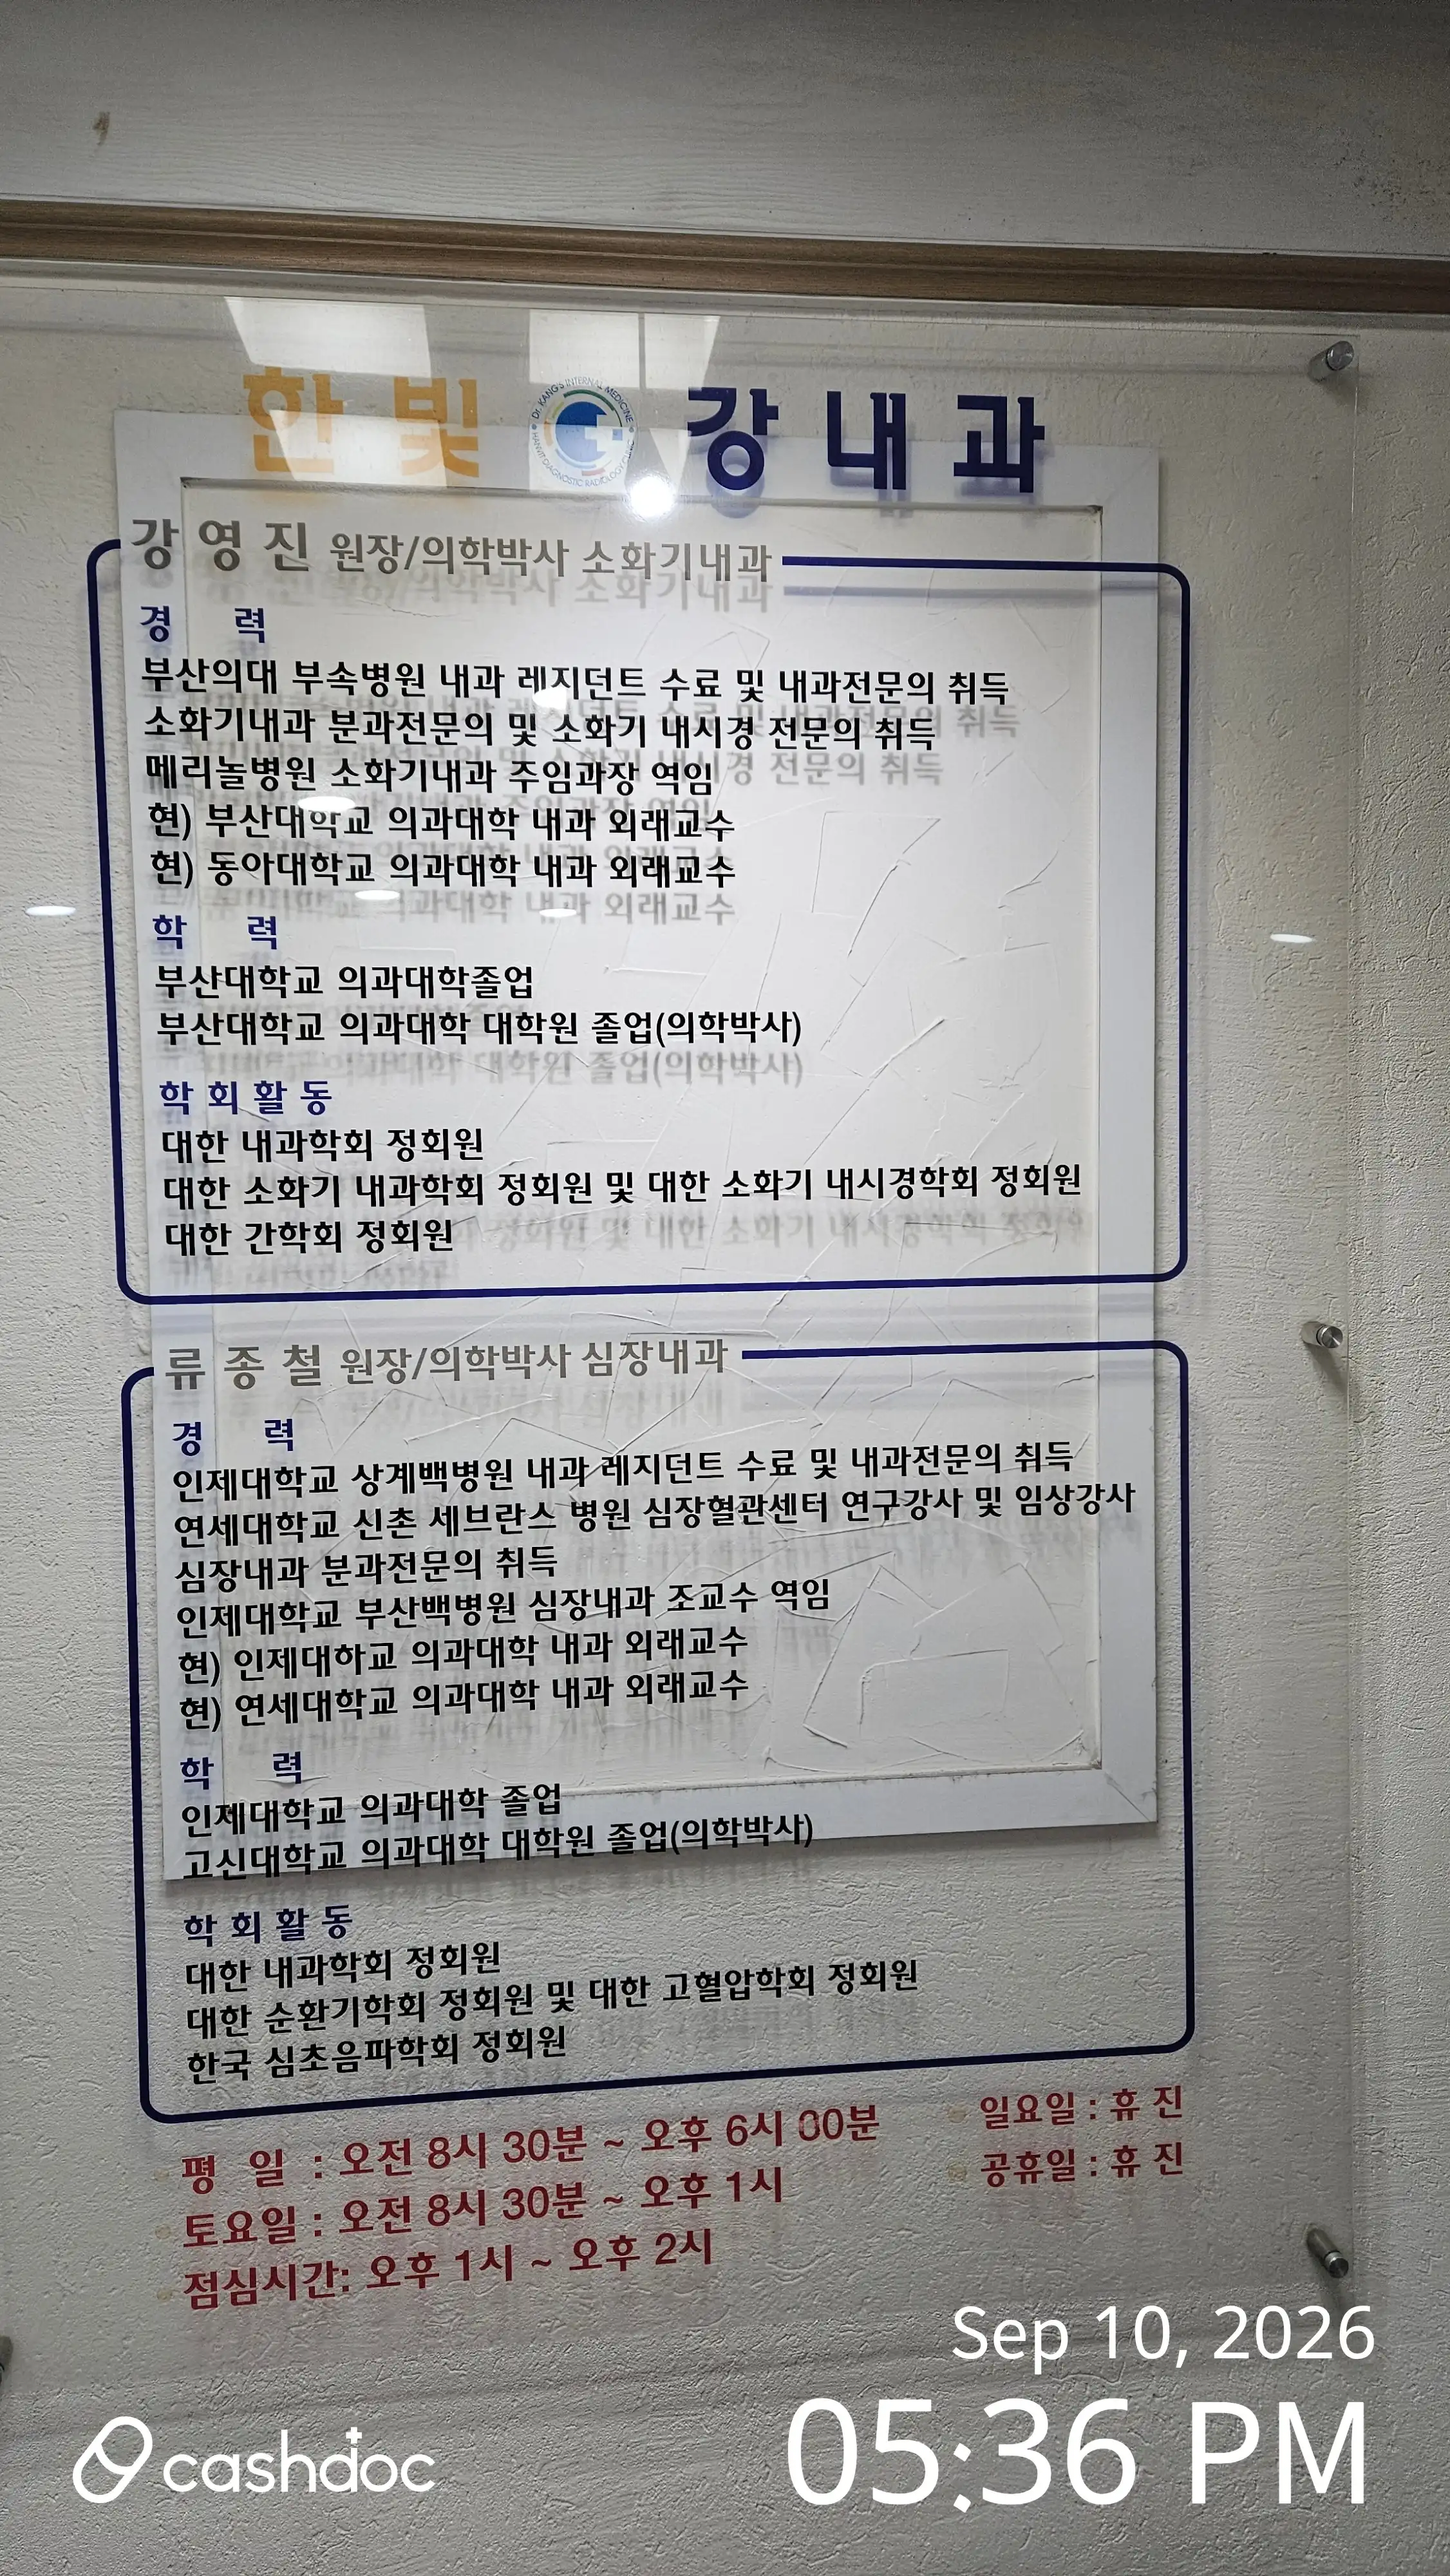 한빛 강내과
Dr. KANG'S INTERNAL MEDICINE
HANVIT DIAGNOSTIC RADIOLOGY CLINIC
강영진 원장/의학박사 소화기내과
경 력
부산의대 부속병원 내과 레지던트 수료 및 내과전문의 취득
소화기내과 분과전문의 및 소화기 내시경 전문의 취득
메리놀병원 소화기내과 주임과장 역임
현) 부산대학교 의과대학 내과 외래교수
현) 동아대학교 의과대학 내과 외래교수
학 력
부산대학교 의과대학졸업
부산대학교 의과대학 대학원 졸업(의학박사)
학회활동
대한 내과학회 정회원
대한 소화기 내과학회 정회원 및 대한 소화기 내시경학회 정회원
대한 간학회 정회원
류종철 원장/의학박사 심장내과
경 력
인제대학교 상계백병원 내과 레지던트 수료 및 내과전문의 취득
연세대학교 신촌 세브란스 병원 심장혈관센터 연구강사 및 임상강사
심장내과 분과전문의 취득
인제대학교 부산백병원 심장내과 조교수 역임
현) 인제대하교 의과대학 내과 외래교수
현) 연세대학교 의과대학 내과 외래교수
학 력
인제대학교 의과대학 졸업
고신대학교 의과대학 대학원 졸업(의학박사)
학회활동
대한 내과학회 정회원
대한 순환기학회 정회원 및 대한 고혈압학회 정회원
한국 심초음파학회 정회원
평 일 : 오전 8시 30분 ~ 오후 6시 00분
일요일 : 휴 진
토요일 : 오전 8시 30분 ~ 오후 1시
공휴일 : 휴 진
점심시간: 오후 1시 ~ 오후 2시
Sep 10, 2026
05:36 PM
cashdoc